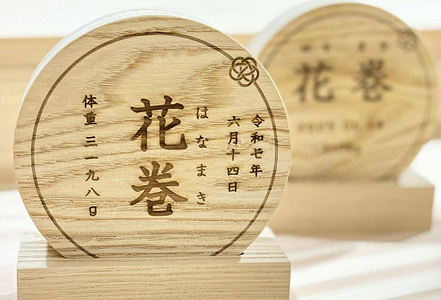 令和七年
六月十四日
はなまき
花巻
体重 三一九八g
花巻